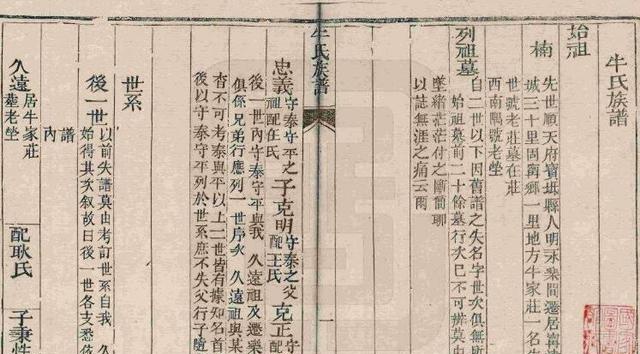 牛氏族譜
始祖
楠
先世順天府寶坻縣人明永樂間遷居
城三十里固蘭鄉一里地方牛家莊一名
世號老莊墓在莊
西南隅號老塋
列祖墓
自二世以下因舊譜之失名字世次俱無
始祖墓前二十餘墓行次已不可辨莫由
墜緒茫茫付之斷簡聊
以誌無涯之痛云爾
牛氏族譜
一
忠義
守泰守平之
祖配任氏
子克明
守泰之父
配王氏
克正
守
配
後一世內守泰守平與我 久遠祖及遷樂
俱係兄弟行應列一世序次 久遠祖與某
杳不可考泰與平以上二世皆有據知名目
後以守泰守平列於世系庶不失父行子隨
世系
後一世
以前失譜莫由考訂世系自我 久
始得其次叙故曰後一世各支悉依
譜
內
久遠
居牛家莊
葬老塋
配耿氏
子秉性